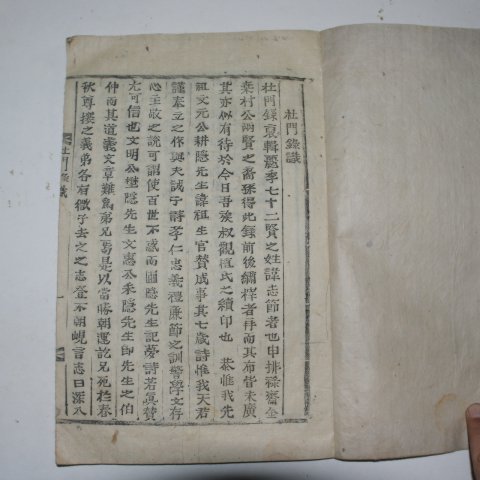 杜門錄識
杜門錄裒輯麗季七十二賢之姓諱志節者也申排
葉村公兩賢之裔孫得此錄前後繡梓者再而其布皆未廣
其亦似有待於今日吾族叔觀植氏之續印也 恭惟我先
祖文元公耕隱先生諱祖生官贊成事其七歲詩惟我天君
謹奉立之作與夫誠子詩孝仁忠義禮廉節之訓警學文存
心主敬之說可謂使百世不惑而圃隱先生記夢詩若眞贊
尤可信也文明公樵隱先生文惠公釆隱先生卽先生之伯
仲而其道義文章難爲弟兄焉是以當勝朝運訖兄死於春
秋尊攘之義弟各有微子去之之志登不朝峴言志曰深入
杜門錄識